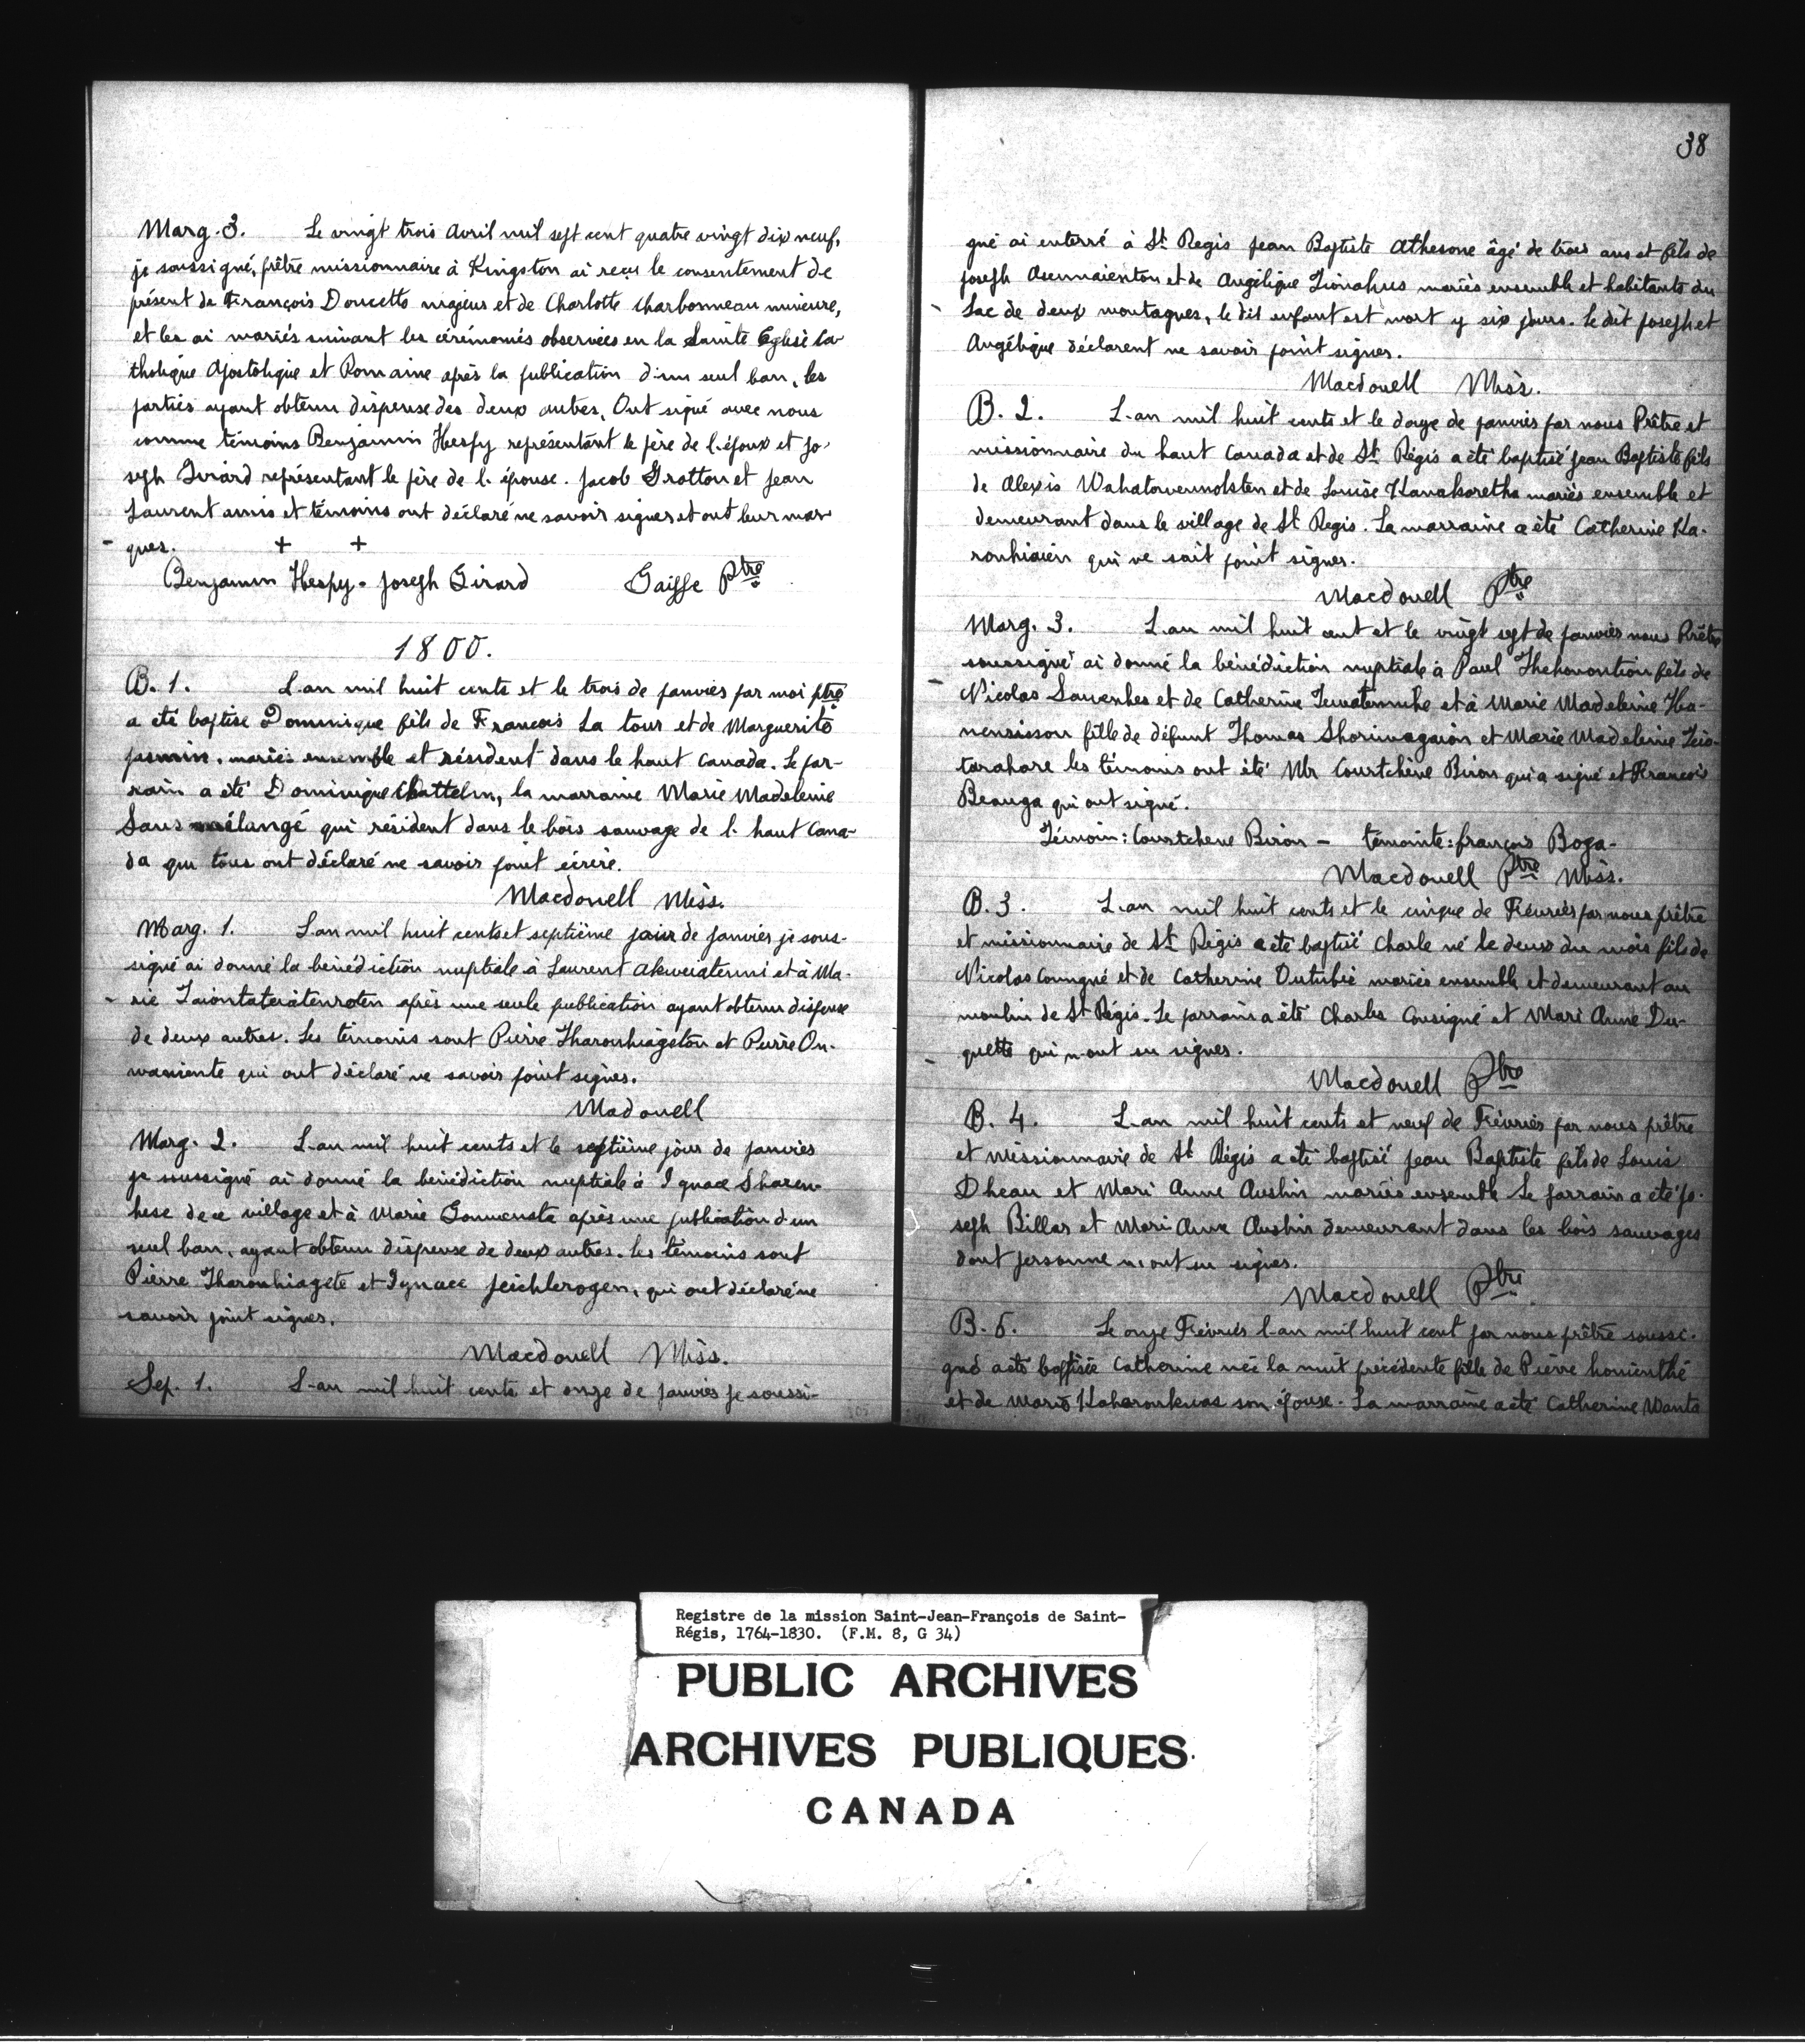 Marg. 3. Le vingt trois Avril mil sept cent quatre vingt dix neuf,
je soussigné, prêtre missionnaire à Kingston ai reçu le consentement de
présent de François Doucette majeur et de Charlotte Charbonneau mineure,
et les ai mariés suivant les cérémonies observées en la Sainte Eglise Ca-
tholique Apostolique et Romaine après la publication d'un seul ban, les
parties ayant obtenu dispense des deux autres. Ont signé avec nous
comme témoins Benjamin Hespy représentant le père de l'époux et Jo-
seph Girard représentant le père de l'épouse. Jacob Gratton et Jean
Laurent amis et témoins ont déclaré ne savoir signer et ont leur mar-
ques. + +
Benjamin Hespy - Joseph Girard Gaiffe Ptre
1800.
B. 1. L'an mil huit cents et le trois de janvier par moi ptre
a été baptisé Dominique fils de François La tour et de Marguerite
jasmin, mariés ensemble et résident dans le haut Canada. Le par-
rain a été Dominique Chattelin, la marraine Marie Madeleine
Sans mélangé qui résident dans le bois sauvage de l. haut Cana-
da qui tous ont déclaré ne savoir point écrire.
Macdonell Miss.
Marg. 1. L'an mil huit cents et septième jour de janvier je sous-
signé ai donné la bénédiction nuptiale à Laurent Akweiatenni et à Ma-
rie Taiontateiatenroten après une seule publication ayant obtenu dispense
de deux autres. Les témoins sont Pierre Tharonhiageton et Pierre On-
waniente qui ont déclaré ne savoir point signer.
Madonell
Marg. 2. L'an mil huit cents et le septième jour de janvier
je soussigné ai donné la bénédiction nuptiale à Ignace Sharen-
hese de ce village et à Marie après une publication d'un
seul ban, ayant obtenu dispense de deux autres. les témoins sont
Pierre Tharonhiagete et Ignace Jeichlerogen, qui ont déclaré ne
savoir point signer.
Macdonell Miss.
Sep. 1. L'an mil huit cents et onze de janvier je soussi-
38
gné ai enterré à St Regis Jean Baptiste Athesone âgé de trois ans et fils de
Joseph Asennaienton et de Angélique Tionahus mariés ensemble et habitants du
Lac de deux montagnes, le dit enfant est mort y six jours. le dit Joseph et
Angélique déclarent ne savoir point signer.
Macdonell Miss.
B. 2. L'an mil huit cents et le douze de janvier par nous Prêtre et
missionnaire du haut Canada et de St Régis a été baptisé Jean Baptiste fils
de Alexis et de Louise Kanakaretha mariés ensemble et
demeurant dans le village de St Regis. La marraine a été Catherine Ka-
ronhiaien qui ne sait point signer.
Macdonell Ptre
Marg. 3. L'an mil huit cent et le vingt sept de janvier nous Prêtre
soussigné ai donné la bénédiction nuptiale à Paul Thehonontion fils de
Nicolas et de Catherine et à Marie Madeleine Ka-
nensisson fille de défunt Thomas Shoriwagaion et Marie Madeleine Teio-
tarahare les témoins ont été Mr Courtchène Biron qui a signé et François
Beauga qui ont signé.
Témoin: Courtchene Biron - témointe: françois Boga-
Macdonell Ptre Miss.
B. 3. L'an mil huit cents et le cinque de Fevrier par nous prêtre
et missionnaire de St Régis a été baptisé Charle né le deux du mois fils de
Nicolas Coungné et de Catherine Dutubie mariés ensemble et demeurant au
moulin de St Régis. Le parrain a été Charles Cousigné et Mari Anne Du-
quette qui n'ont su signer.
Macdonell Ptre
B. 4. L'an mil huit cents et neuf de Fiévrier par nous prêtre
et missionnaire de St Régis a été baptisé Jean Baptiste fils de Louis
Dheau et Mari Anne Aushin mariés ensemble Le parrain a été Jo-
seph Billar et Mari Anne Aushin demeurant dans les bois sauvages
dont personne n'ont su signer.
Macdonell Ptre
B. 5. Le onze Fiévrier l'an mil huit cent par nous prêtre soussi-
gné a été baptisée Catherine née la nuit précédente fille de Pierre honienthé
et de Marie Kaharonkwas son épouse. La marraine a été Catherine Wante
Registre de la mission Saint-Jean-François de Saint-
Régis, 1764-1830. (F.M. 8, G 34)
PUBLIC ARCHIVES
ARCHIVES PUBLIQUES
CANADA